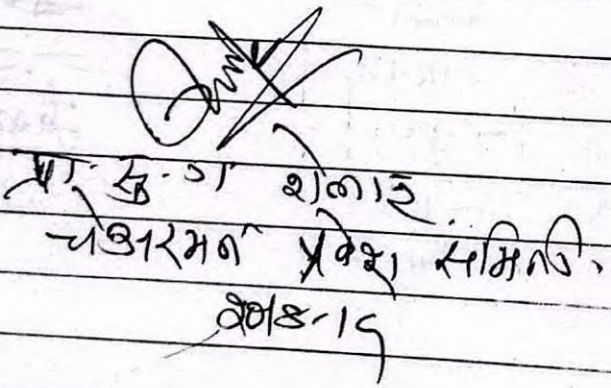 प्रा. सु. ग शेलार
चेअरमन प्रवेश समिती.
२०१८-१९